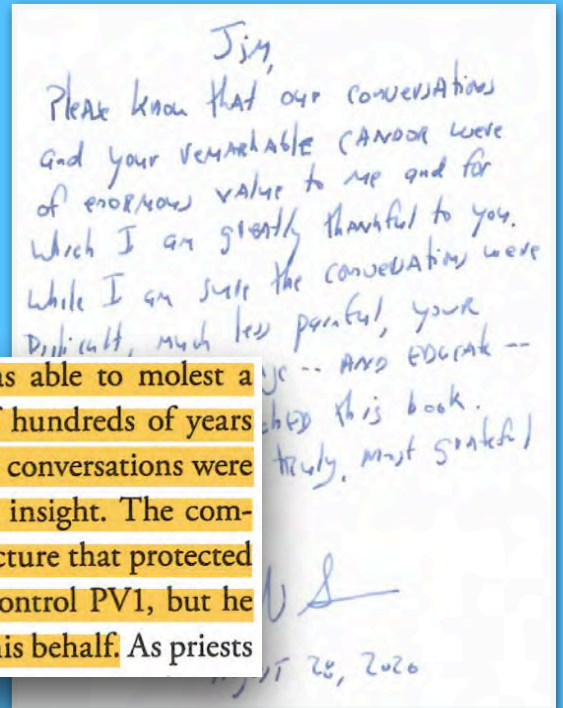 Jim,
Please know that our conversations
and your remarkable CANDOR were
of enormous value to me and for
which I am greatly thankful to you.
While I am sure the conversations were
Difficult, much less painful, your
-- AND EDUCATE --
this book.
truly, most grateful
28, 2020
as able to molest a
hundreds of years
conversations were
insight. The com-
cture that protected
ontrol PV1, but he
his behalf. As priests